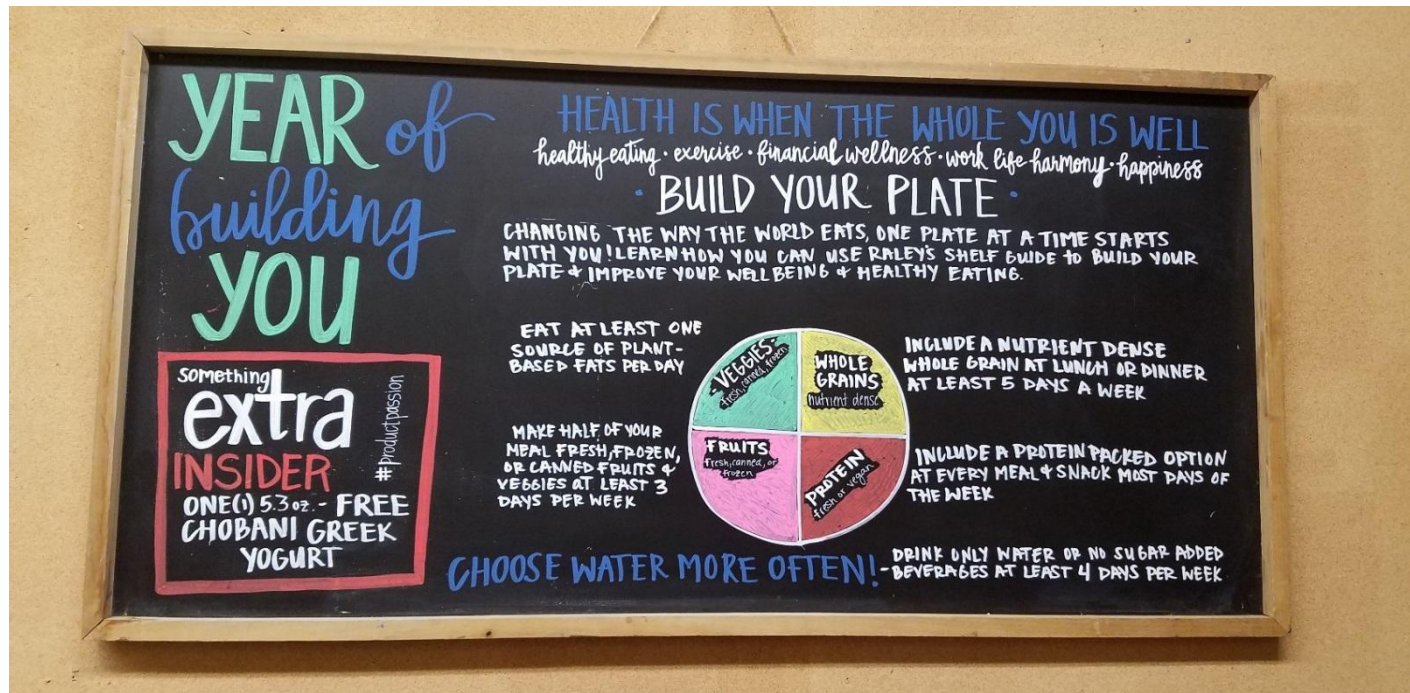 YEAR of
building
YOU
something
extra
INSIDER
#productpassion
ONE(1) 5.3 oz. - FREE
CHOBANI GREEK
YOGURT
HEALTH IS WHEN THE WHOLE YOU IS WELL
healthy eating · exercise · financial wellness · work life harmony · happiness
· BUILD YOUR PLATE ·
CHANGING THE WAY THE WORLD EATS, ONE PLATE AT A TIME STARTS
WITH YOU! LEARN HOW YOU CAN USE RALEY'S SHELF GUIDE TO BUILD YOUR
PLATE & IMPROVE YOUR WELLBEING & HEALTHY EATING.
EAT AT LEAST ONE
SOURCE OF PLANT-
BASED FATS PER DAY
MAKE HALF OF YOUR
MEAL FRESH, FROZEN,
OR CANNED FRUITS &
VEGGIES AT LEAST 3
DAYS PER WEEK
-VEGGIES-
fresh, canned, frozen
WHOLE
GRAINS
nutrient dense
FRUITS
fresh, canned, or
frozen
PROTEIN
fresh or vegan
INCLUDE A NUTRIENT DENSE
WHOLE GRAIN AT LUNCH OR DINNER
AT LEAST 5 DAYS A WEEK
INCLUDE A PROTEIN PACKED OPTION
AT EVERY MEAL & SNACK MOST DAYS OF
THE WEEK
CHOOSE WATER MORE OFTEN!
- DRINK ONLY WATER OR NO SUGAR ADDED
BEVERAGES AT LEAST 4 DAYS PER WEEK